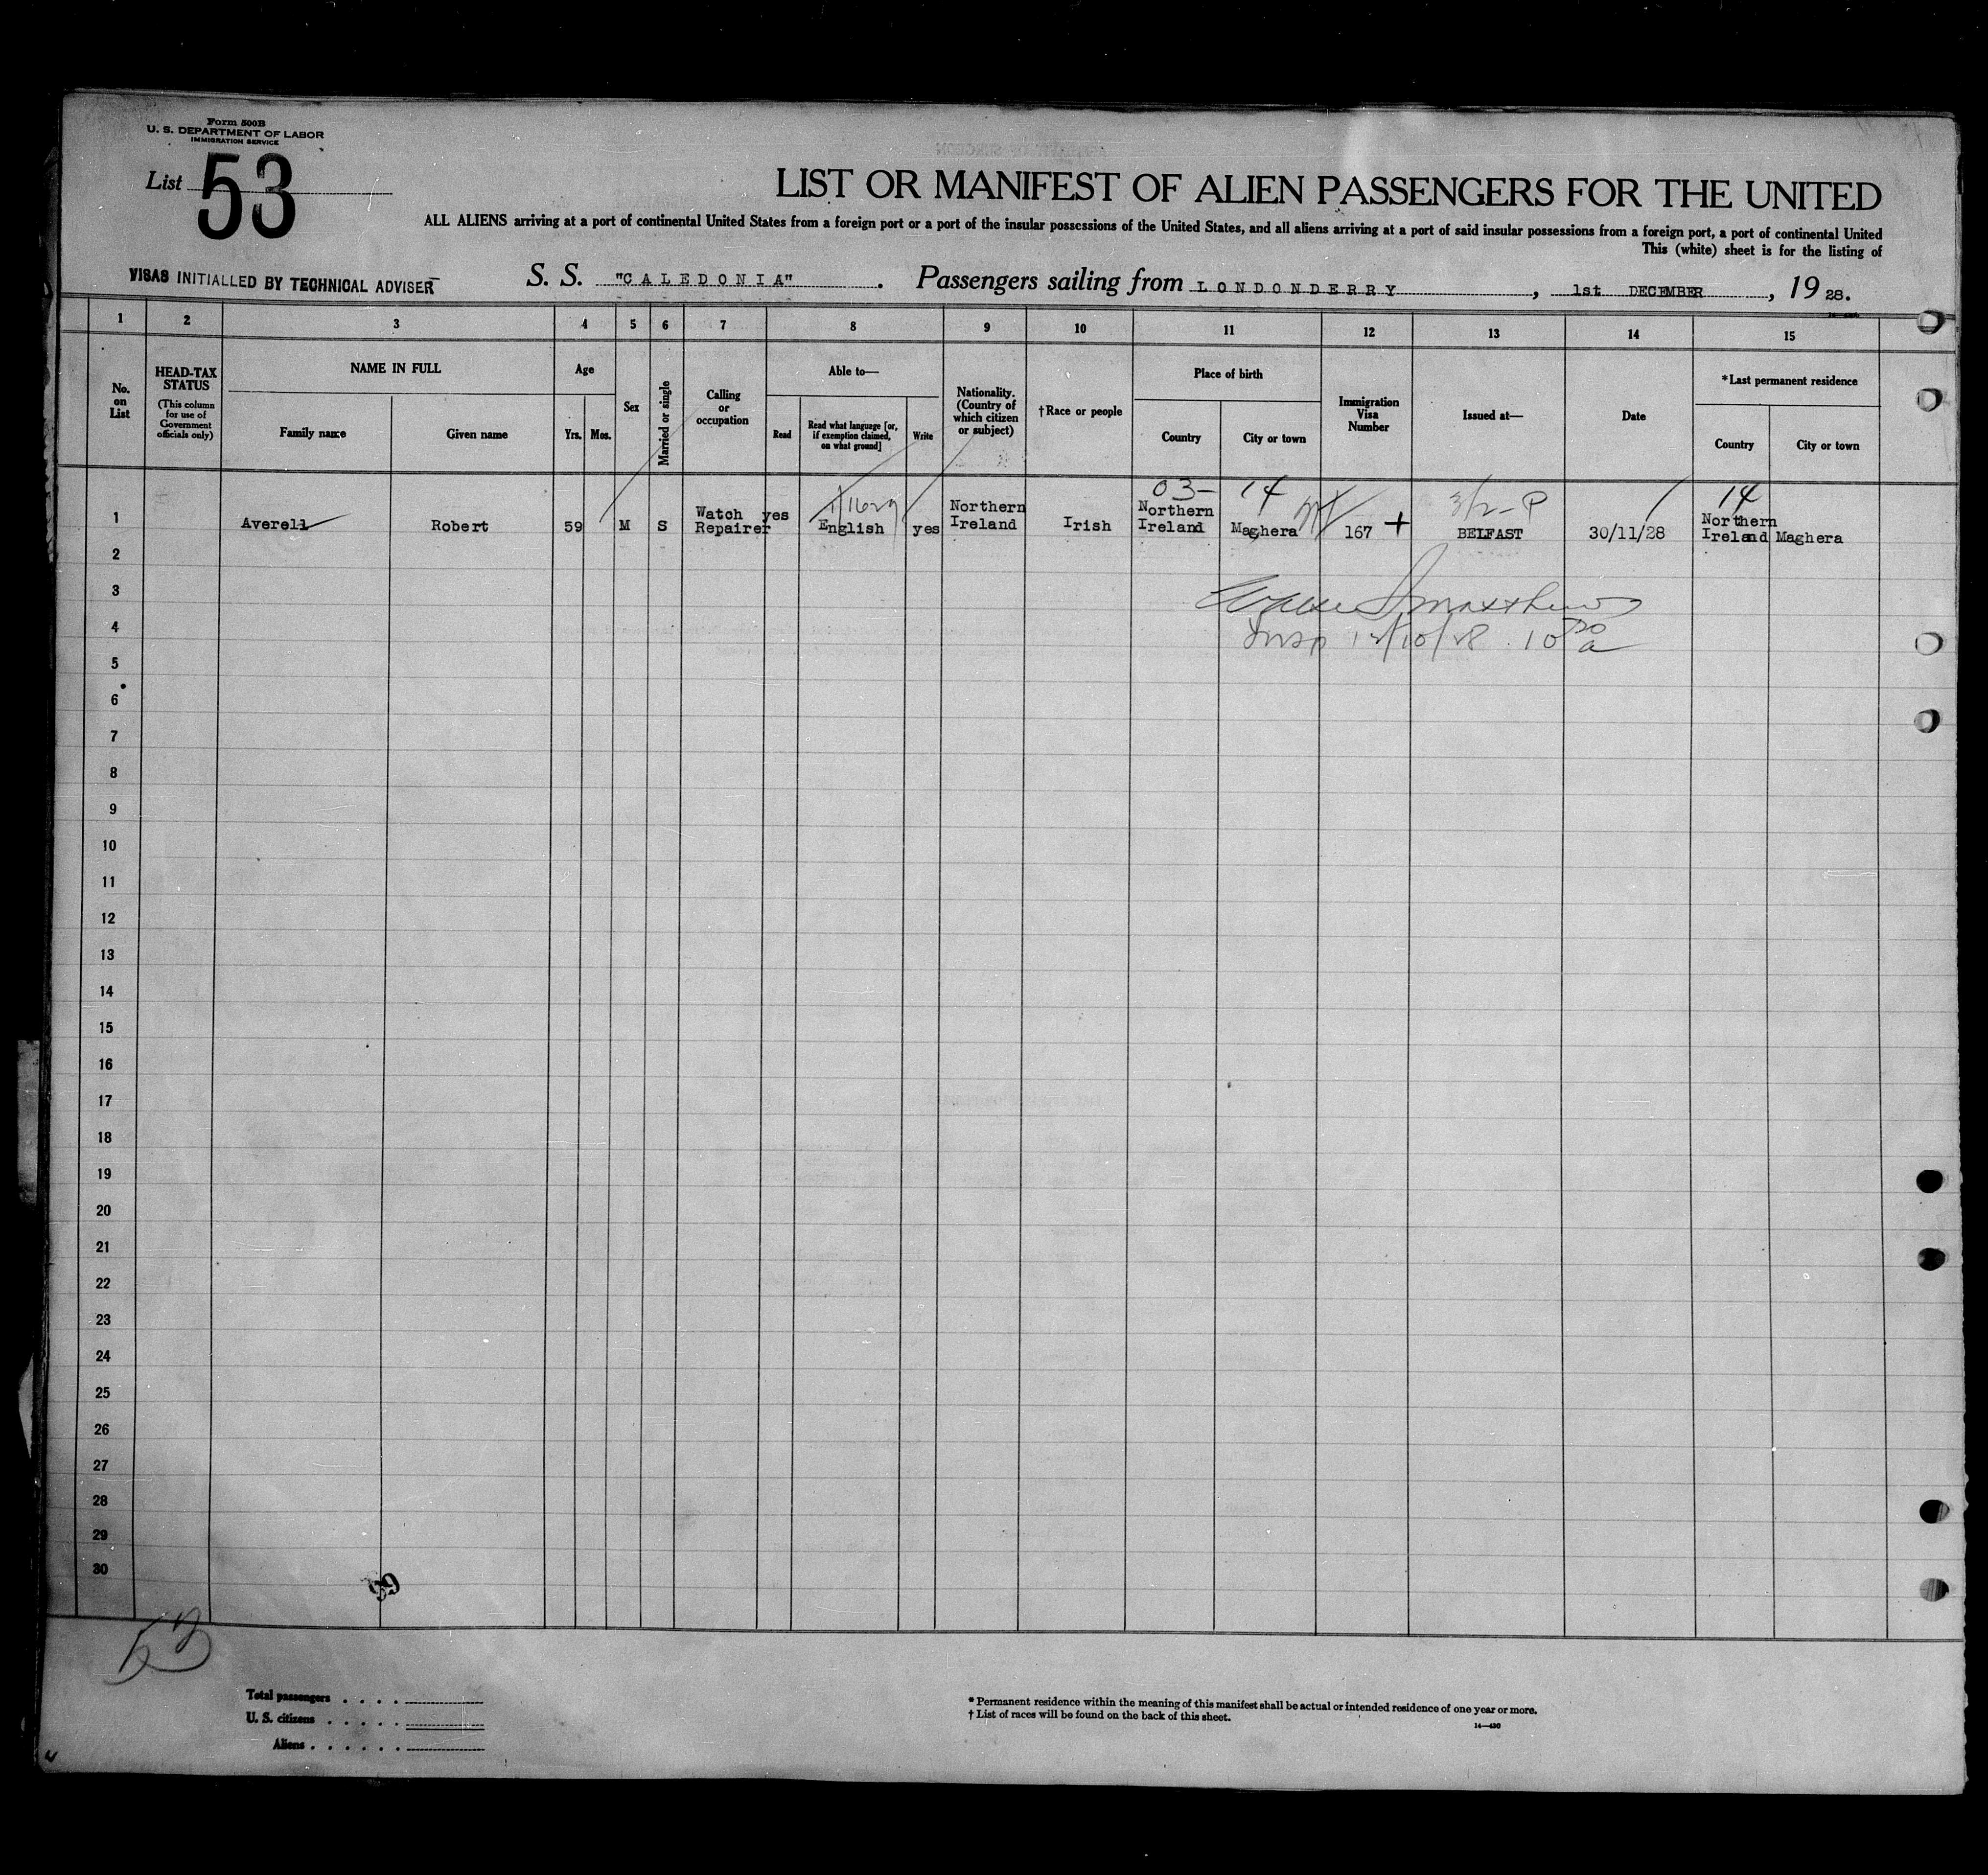 Form 500B
U. S. DEPARTMENT OF LABOR
IMMIGRATION SERVICE
List 53
LIST OR MANIFEST OF ALIEN PASSENGERS FOR THE UNITED
ALL ALIENS arriving at a port of continental United States from a foreign port or a port of the insular possessions of the United States, and all aliens arriving at a port of said insular possessions from a foreign port, a port of continental United
This (white) sheet is for the listing of
VISAS INITIALLED BY TECHNICAL ADVISER
S. S. "CALEDONIA". Passengers sailing from LONDONDERRY, 1st DECEMBER, 19 28.
1 2 3 4 5 6 7 8 9 10 11 12 13 14 15
No. on List
HEAD-TAX STATUS (This column for use of Government officials only)
NAME IN FULL
Family name
Given name
Age
Yrs. Mos.
Sex
Married or single
Calling or occupation
Able to—
Read
Read what language [or, if exemption claimed, on what ground]
Write
Nationality. (Country of which citizen or subject)
†Race or people
Place of birth
Country
City or town
Immigration Visa Number
Issued at—
Date
*Last permanent residence
Country
City or town
03- 14 3/2-P 14
1 Averell Robert 59 M S Watch Repairer yes English yes Northern Ireland Irish Northern Ireland Maghera 167 + BELFAST 30/11/28 Northern Ireland Maghera
2
3
Matthews
4
Insp 12/10/28 10 30 a
5
6
7
8
9
10
11
12
13
14
15
16
17
18
19
20
21
22
23
24
25
26
27
28
29
30
53
Total passengers . . . .
U. S. citizens . . . . .
Aliens . . . . . .
* Permanent residence within the meaning of this manifest shall be actual or intended residence of one year or more.
† List of races will be found on the back of this sheet.
14—430